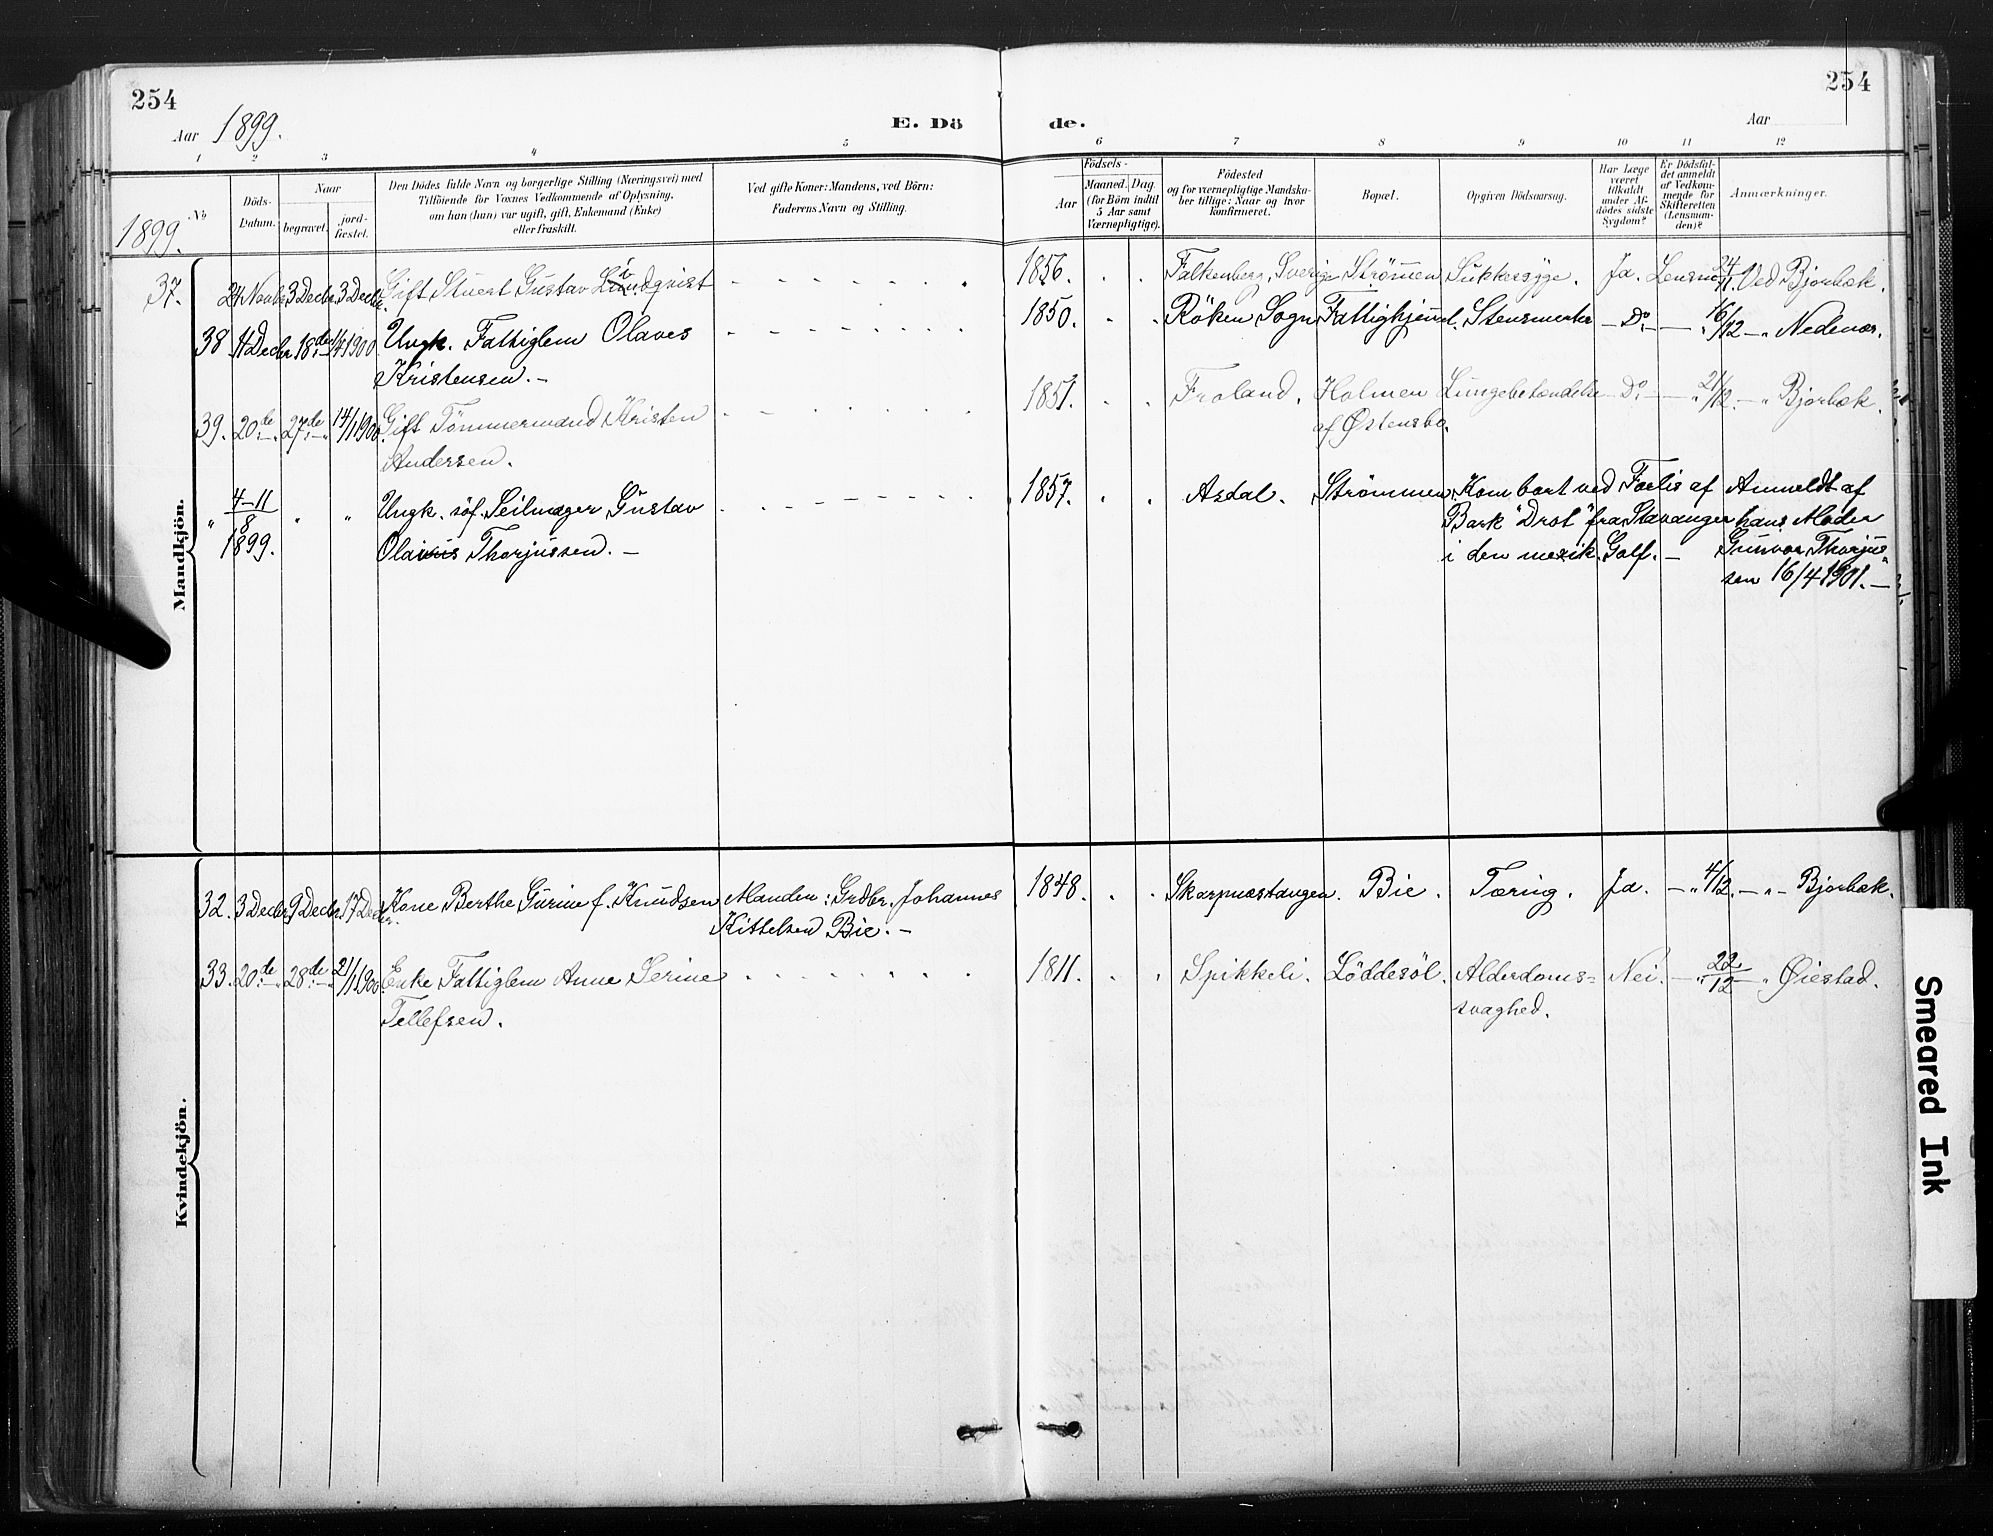 254
254
Aar 1899.
E. Dö de.
Aar
1 2 3 4 5 6 7 8 9 10 11 12
No
Döds-Datum.
Naar
begravet.
jord-fæstet.
Den Dödes fulde Navn og borgerlige Stilling (Næringsvei) med
Tilföiende for Voxnes Vedkommende af Oplysning,
om han (hun) var ugift, gift, Enkemand (Enke)
eller fraskilt.
Ved gifte Koner: Mandens, ved Börn:
Faderens Navn og Stilling.
Födsels-
Aar
Maaned. Dag.
(for Börn indtil
5 Aar samt
Værnepligtige).
Födested
og for værnepligtige Mandska-
ber tillige: Naar og hvor
konfirmeret.
Bopæl.
Opgiven Dödsaarsag.
Har Læge
været
tilkaldt
under Af-
dödes sidste
Sygdom?
Er Dödsfal-
det anmeldt
af Vedkom-
mende for
Skifteretten
(Lensman-
den)?
Anmærkninger.
1899.
Mandkjön.
37. 24 Novbr. 3 Decbr. 3 Decbr. Gift Stuert Gustav Lindqvist 1856. Falkenberg, Sverige Strömen Sukkersyge. Ja. Lensm. Ved Bjorbæk.
38 11 Decbr. 18de 14/1 1900 Ungk. Fattiglem Olaves 1850. Röken Sogn Fattighjem Do 16/12 Nedenæs.
Kristensen.
39. 20de 27de 14/1 1900 Gift Tömmermand Kristen 1851. Froland. Holmen Lungebetændelse Do 21/12. Bjorbæk.
Andersen. af Östensbo.
" 4-11/8 1899. " " Ungk. söf. Seilmager Gustav 1857. Asdal. Strömmen. Kom bort ved Forlis af Anmeldt af
Thorjussen. Bark "Drot" fra Stavanger hans Moder
i den mexik. Golf. Gunvor Thorjus-
sen 16/4 1901.
Kvindekjön.
32. 3 Decbr. 9 Decbr. 17 Decbr. Kone Berthe Gurine f. Knudsen Manden: Grdbr. Johannes 1848. Skarpnæstangen. Bie. Tæring. Ja. 4/12 Bjorbæk.
Kittelsen Bie.
33. 20de 28de 21/1 1900 Enke Fattiglem Anne Serine 1811. Spikkeli. Löddesöl. Alderdoms- Nei. 22/12 Öiestad.
Tellefsen. svaghed.
Smeared Ink